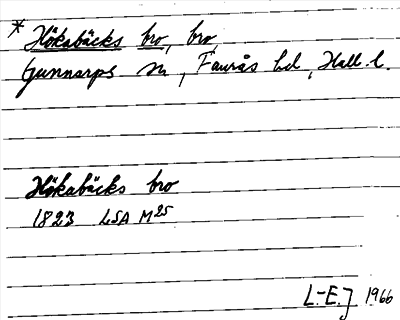 * Hökabäcks bro, bro,
Gunnarps sn, Faurås hd, Hall. l.
Hökabäcks bro
1823 LSA M25
L.-E.J 1966